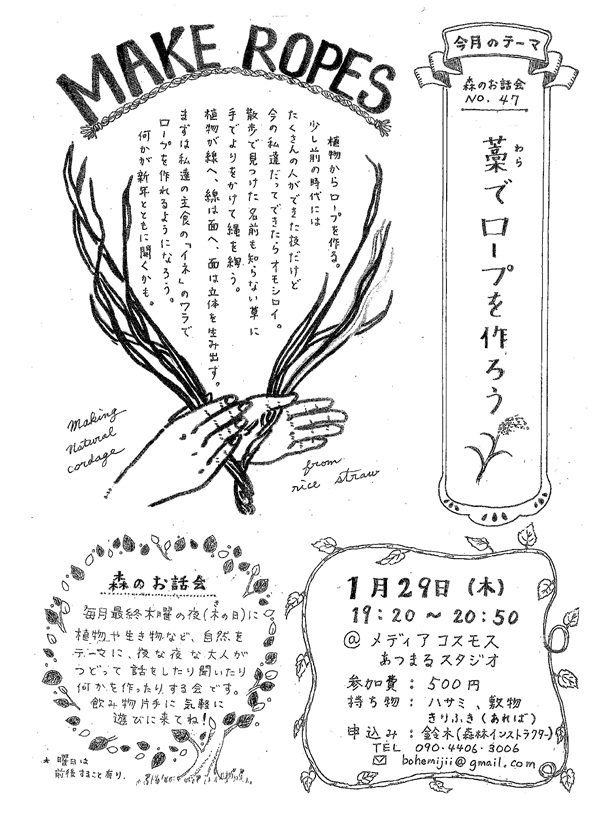 MAKE ROPES
植物からロープを作る。
少し前の時代には
たくさんの人ができた技だけど
今の私達だってできたらオモシロイ。
散歩で見つけた名前も知らない草に
手でよりをかけて縄を綯う。
植物が線へ、線は面へ、面は立体を生み出す。
まずは私達の主食の「イネ」のワラで
ロープを作れるようになろう。
何かが新年とともに開くかも。
Making
Natural
cordage
from
rice straw
今月のテーマ
森のお話会
NO. 47
藁でロープを作ろう
わら
森のお話会
毎月最終木曜の夜(木の日)に
植物や生き物など、自然を
テーマに、夜な夜な大人が
つどって話をしたり聞いたり
何かを作ったりする会です。
飲み物片手に気軽に
遊びに来てね!
★曜日は
前後すること有り.
1月29日(木)
19:20〜20:50
@メディアコスモス
あつまるスタジオ
参加費:500円
持ち物:ハサミ、敷物
きりふき(あれば)
申込み:鈴木(森林インストラクター)
TEL 090・4406・3006
bohemijii@gmail.com